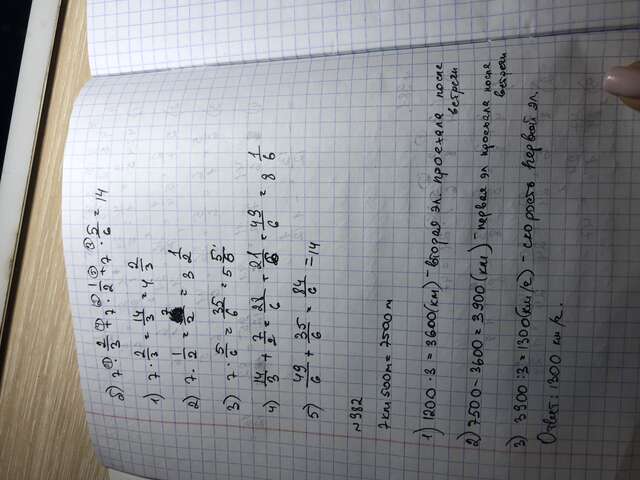 б) 7 · 2/3 + 7 · 1/2 + 7 · 5/6 = 14
1) 7 · 2/3 = 14/3 = 4 2/3
2) 7 · 1/2 = 7/2 = 3 1/2
3) 7 · 5/6 = 35/6 = 5 5/6
4) 14/3 + 7/2 = 28/6 + 21/6 = 49/6 = 8 1/6
5) 49/6 + 35/6 = 84/6 = 14
№982
7км 500м = 7500 м
1) 1200 · 3 = 3600(км) – вторая эл. проехала после
встречи
2) 7500 – 3600 = 3900 (км) – первая эл проехала после
встречи
3) 3900 : 3 = 1300(км/г) – скорость первой эл.
Ответ: 1300 км/г.